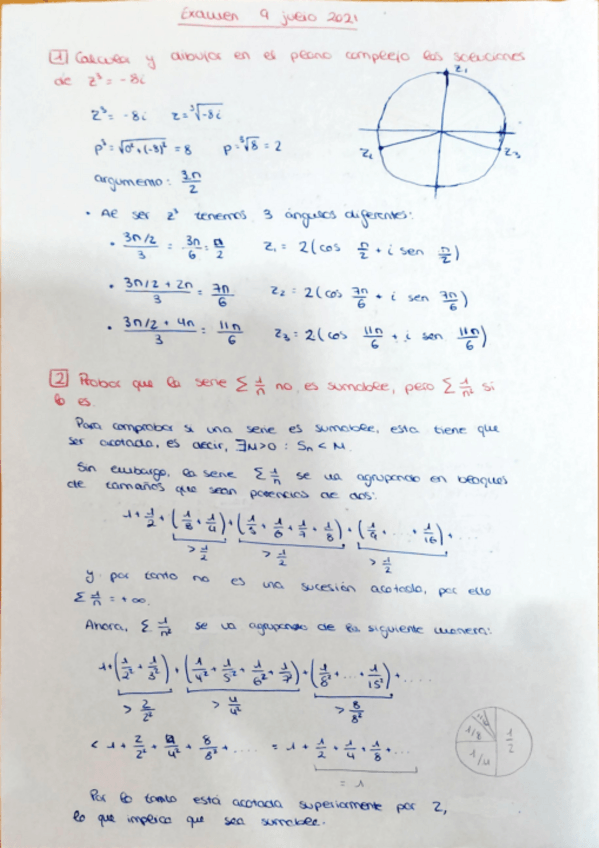 Examen 9 julio 2021
1 Calcular y dibujar en el plano complejo las soluciones
de z³ = -8i
z³ = -8i z = ³√-8i
ρ³ = √0²+(-8)² = 8 ρ = ³√8 = 2
argumento: 3π/2
z₁
z₂
z₃
• Al ser z³ tenemos 3 ángulos diferentes:
• (3π/2)/3 = 3π/6 = π/2 z₁ = 2(cos π/2 + i sen π/2)
• (3π/2 + 2π)/3 = 7π/6 z₂ = 2(cos 7π/6 + i sen 7π/6)
• (3π/2 + 4π)/3 = 11π/6 z₃ = 2(cos 11π/6 + i sen 11π/6)
2 Probar que la serie Σ 1/n no es sumable, pero Σ 1/n² si
lo es.
Para comprobar si una serie es sumable, esta tiene que
ser acotada, es decir, ∃M>0 : Sn < M.
Sin embargo, la serie Σ 1/n se va agrupando en bloques
de tamaños que sean potencias de dos:
1 + 1/2 + (1/3 + 1/4) + (1/5 + 1/6 + 1/7 + 1/8) + (1/9 + ... + 1/16) + ...
> 1/2 > 1/2 > 1/2
y por tanto no es una sucesión acotada, por ello
Σ 1/n = +∞.
Ahora, Σ 1/n² se va agrupando de la siguiente manera:
1 + (1/2² + 1/3²) + (1/4² + 1/5² + 1/6² + 1/7²) + (1/8² + ... + 1/15²) + ....
> 2/2² > 4/4² > 8/8²
< 1 + 2/2² + 4/4² + 8/8² + .... = 1 + 1/2 + 1/4 + 1/8 + ...
= 1
1/2
1/4
1/8
Por lo tanto está acotada superiormente por 2,
lo que implica que sea sumable.